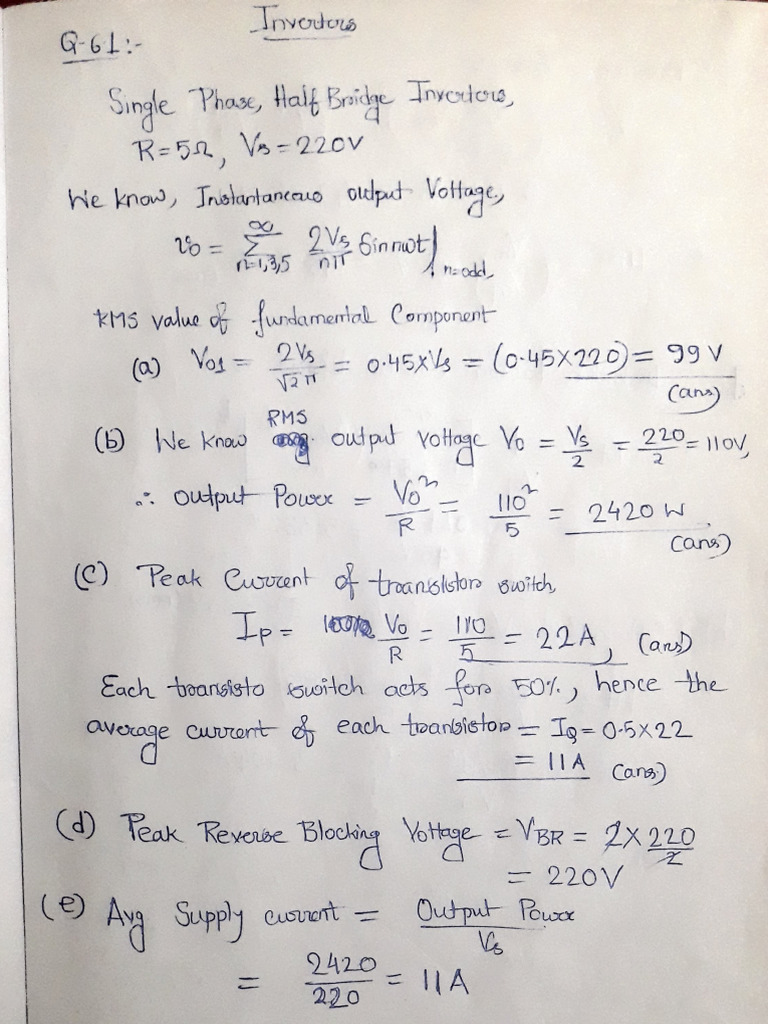 Invertors
Q-6.1:-
Single Phase, Half Bridge Invertors,
R=5Ω, Vs=220V
We know, Instantaneous output Voltage,
v0 = ∞ Σ n=1,3,5 2Vs/nπ Sin nωt | n=odd,
RMS value of fundamental Component
(a) V01 = 2Vs/√2 π = 0.45×Vs = (0.45×220) = 99 V
(ans)
(b) We know RMS output voltage V0 = Vs/2 = 220/2 = 110V,
∴ output Power = V0²/R = 110²/5 = 2420 W
(ans)
(c) Peak Current of transistor switch,
Ip = V0/R = 110/5 = 22A, (ans)
Each transisto switch acts for 50%, hence the
average current of each transistor = IQ = 0.5×22
= 11A (ans.)
(d) Peak Reverse Blocking Voltage = VBR = 2×220/2
= 220V
(e) Avg Supply current = Output Power/Vs
= 2420/220 = 11A